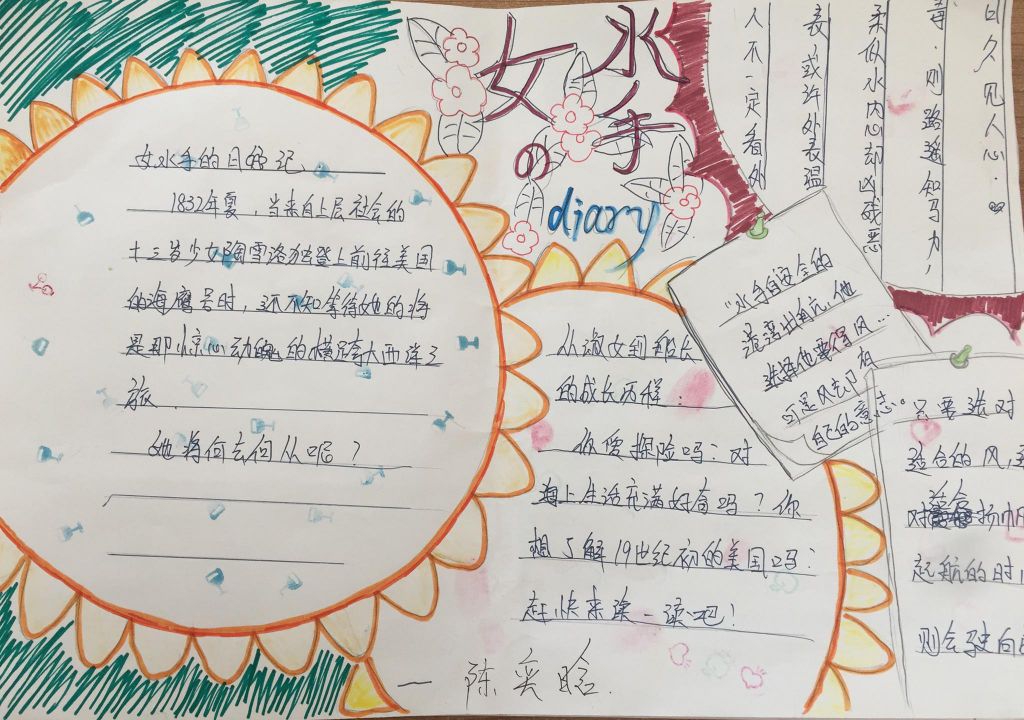 女水手の
diary
女水手的日记
1832年夏，当来自上层社会的
十三岁少女陶雪洛独登上前往美国
的海鹰号时，还不知等待她的将
是那惊心动魄的横跨大西洋之
旅．
她将何去何从呢？
从淑女到船长
的成长历程．
你要探险吗？对
海上生活充满好奇吗？你
想了解19世纪初的美国吗？
赶快来读一读吧！
"水手自安全的
港湾出航．他
选择他要
可是风也只有
自己的意志。
只要选对
适合的风，
对 扬帆
起航的时
则会驶向
日久见人心．
毒．则路遥知马力，
柔似水内心却凶残恶
表或许外表温
人不一定看外
— 陈奕晗．